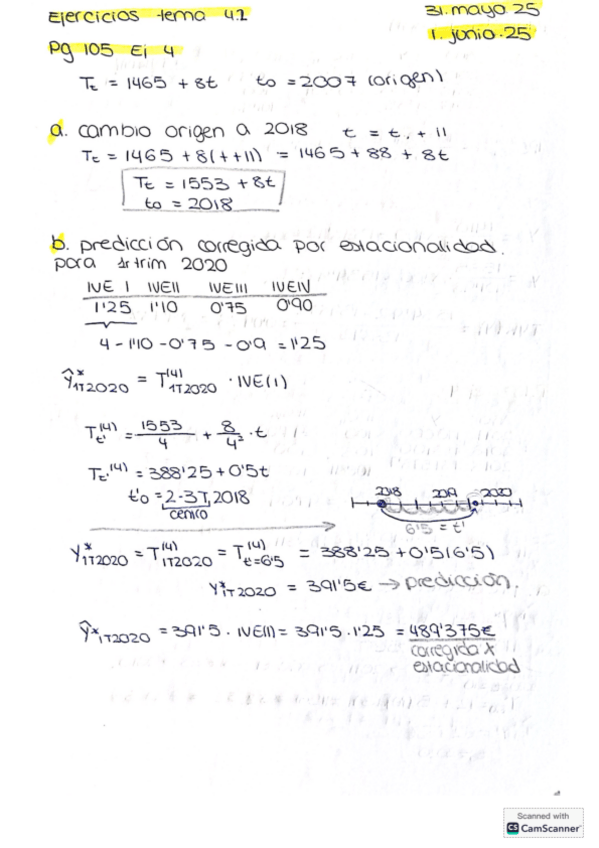 Ejercicios tema 4.1
31. mayo 25
1. junio. 25
Pg 105 Ej 4
Tt = 1465 + 8t   to = 2007 (origen)
a. cambio origen a 2018   t = t. + 11
Tt = 1465 + 8(t + 11) = 1465 + 88 + 8t
Tt = 1553 + 8t
to = 2018
b. predicción corregida por estacionalidad.
para 1r trim 2020
IVE I IVEII IVEIII IVEIV
1'25 1'10 0'75 0'90
4 - 1'10 - 0'75 - 0'9 = 1'25
Ŷ*1T2020 = T(4)1T2020 · IVE(1)
Tt'(4) = 1553/4 + 8/4² · t
Tt'(4) = 388'25 + 0'5t
t'o = 2-3T, 2018
centro
2018 2019 2020
6'5 = t'
Y*1T2020 = T(4)1T2020 = T(4)t=6'5 = 388'25 + 0'5(6'5)
Y*1T2020 = 391'5€ → predicción.
Ŷ*1T2020 = 391'5 · IVE(1) = 391'5 · 1'25 = 489'375€
corregida x
estacionalidad
Scanned with
CS CamScanner